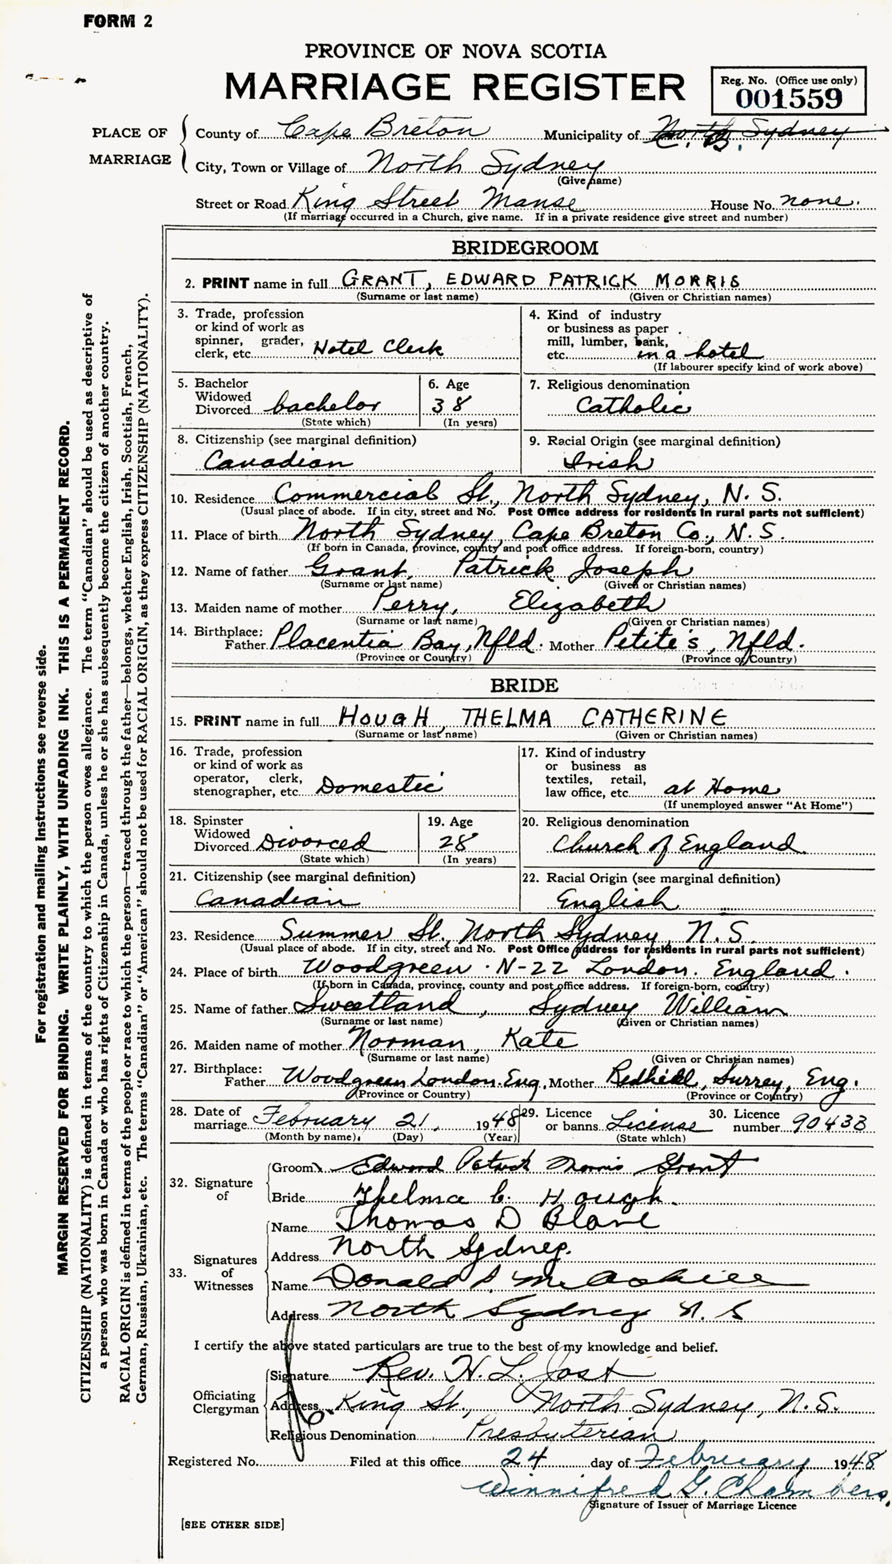 FORM 2
PROVINCE OF NOVA SCOTIA
MARRIAGE REGISTER
Reg. No. (Office use only)
001559
PLACE OF MARRIAGE
County of Cape Breton Municipality of North Sydney C. B.
City, Town or Village of North Sydney
(Give name)
Street or Road King Street Manse House No. none.
(If marriage occurred in a Church, give name. If in a private residence give street and number)
BRIDEGROOM
2. PRINT name in full GRANT, EDWARD PATRICK MORRIS
(Surname or last name) (Given or Christian names)
3. Trade, profession
or kind of work as
spinner, grader,
clerk, etc. Hotel Clerk
4. Kind of industry
or business as paper
mill, lumber, bank,
etc. in a hotel
(If labourer specify kind of work above)
5. Bachelor
Widowed
Divorced bachelor
(State which)
6. Age
38
(In years)
7. Religious denomination
Catholic
8. Citizenship (see marginal definition)
Canadian
9. Racial Origin (see marginal definition)
Irish
10. Residence Commercial St., North Sydney, N. S.
(Usual place of abode. If in city, street and No. Post Office address for residents in rural parts not sufficient)
11. Place of birth North Sydney, Cape Breton Co., N. S.
(If born in Canada, province, county and post office address. If foreign-born, country)
12. Name of father Grant, Patrick Joseph
(Surname or last name) (Given or Christian names)
13. Maiden name of mother Perry, Elizabeth
(Surname or last name) (Given or Christian names)
14. Birthplace:
Father Placentia Bay, Nfld. Mother Petite's, Nfld.
(Province or Country) (Province or Country)
BRIDE
15. PRINT name in full HOUGH, THELMA CATHERINE
(Surname or last name) (Given or Christian names)
16. Trade, profession
or kind of work as
operator, clerk,
stenographer, etc. Domestic
17. Kind of industry
or business as
textiles, retail,
law office, etc. at Home
(If unemployed answer "At Home")
18. Spinster
Widowed
Divorced Divorced
(State which)
19. Age
28
(In years)
20. Religious denomination
Church of England
21. Citizenship (see marginal definition)
Canadian
22. Racial Origin (see marginal definition)
English
23. Residence Summer St., North Sydney, N. S.
(Usual place of abode. If in city, street and No. Post Office address for residents in rural parts not sufficient)
24. Place of birth Woodgreen N-22 London. England.
(If born in Canada, province, county and post office address. If foreign-born, country)
25. Name of father Sweetland, Sydney William
(Surname or last name) (Given or Christian names)
26. Maiden name of mother Norman, Kate
(Surname or last name) (Given or Christian names)
27. Birthplace:
Father Woodgreen London. Eng. Mother Redhill, Surrey, Eng.
(Province or Country) (Province or Country)
28. Date of
marriage February 21, 1948
(Month by name), (Day) (Year)
29. Licence
or banns License
(State which)
30. Licence
number 90433
32. Signature of
Groom Edward Patrick Morris Grant
Bride Thelma C. Hough.
33. Signatures of Witnesses
Name Thomas D
Address North Sydney.
Name Donald
Address North Sydney N. S
I certify the above stated particulars are true to the best of my knowledge and belief.
Officiating Clergyman
Signature Rev. H. L. Jost
Address King St., North Sydney, N. S.
Religious Denomination Presbyterian
Registered No. Filed at this office 24 day of February 1948
Winnifred G. Chambers.
Signature of Issuer of Marriage Licence
[SEE OTHER SIDE]
For registration and mailing instructions see reverse side.
MARGIN RESERVED FOR BINDING. WRITE PLAINLY, WITH UNFADING INK. THIS IS A PERMANENT RECORD.
CITIZENSHIP (NATIONALITY) is defined in terms of the country to which the person owes allegiance. The term "Canadian" should be used as descriptive of
a person who was born in Canada or who has rights of Citizenship in Canada, unless he or she has subsequently become the citizen of another country.
RACIAL ORIGIN is defined in terms of the people or race to which the person—traced through the father—belongs, whether English, Irish, Scottish, French,
German, Russian, Ukrainian, etc. The terms "Canadian" or "American" should not be used for RACIAL ORIGIN, as they express CITIZENSHIP (NATIONALITY).